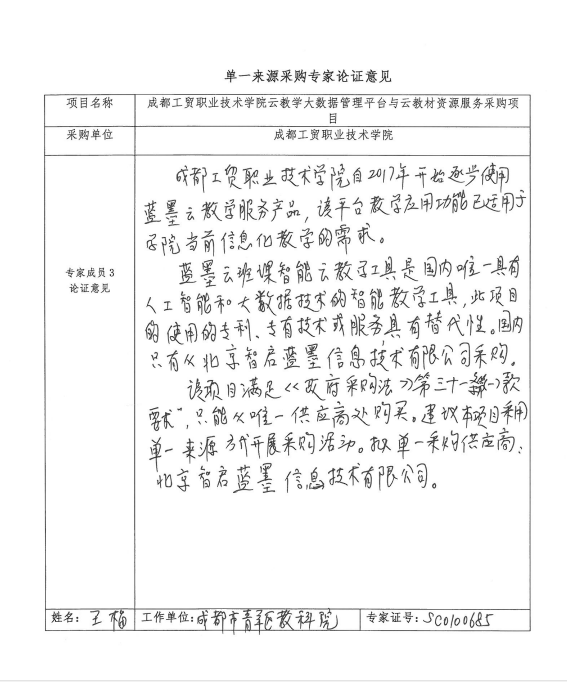 单一来源采购专家论证意见
项目名称 成都工贸职业技术学院云教学大数据管理平台与云教材资源服务采购项
目
采购单位 成都工贸职业技术学院
专家成员 3
论证意见
成都工贸职业技术学院自2017年开始逐步使用
蓝墨云教学服务产品，该平台教学应用功能已适用于
学院当前信息化教学的需求。
蓝墨云班课智能云教学工具是国内唯一具有
人工智能和大数据技术的智能教学工具，此项目
的使用的专利、专有技术或服务具有替代性。国内
只有从北京智启蓝墨信息技术有限公司采购。
该项目满足《政府采购法》第三十一条（一）款
要求"，只能从唯一供应商处购买。建议本项目采用
单一来源方式开展采购活动。拟单一采购供应商：
北京智启蓝墨信息技术有限公司。
姓名：王梅 工作单位：成都市青羊区教科院 专家证号：SC0100685